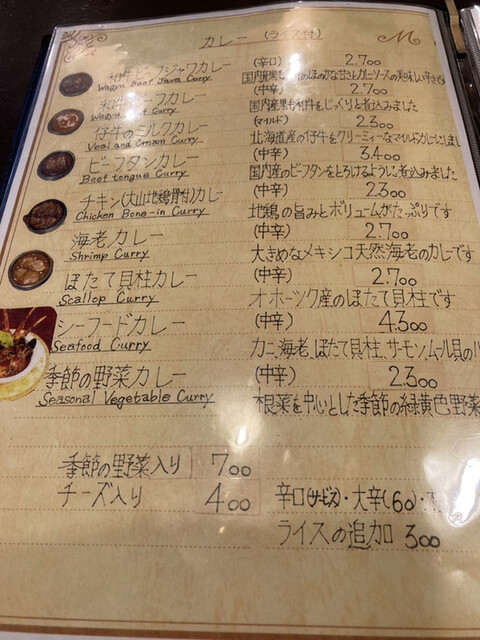 カレー (ライス付)
M
和牛ビーフジャワカレー (辛口) 2.700
Wagyu Beef Java Curry
和牛ビーフカレー (中辛) 2.700
Wagyu Beef Curry 国内産黒毛和牛をじっくりと煮込みました
仔牛のミルクカレー (マイルド) 2.300
Veal and Cream Curry 北海道産の仔牛をクリーミィなマイルドカレーにしまし
ビーフタンカレー (中辛) 3.400
Beef tongue Curry 国内産のビーフタンをとろけるように煮込みました
チキン(大山地鶏骨付)カレー (中辛) 2.300
Chicken Bone-in Curry 地鶏の旨みとボリュームがたっぷりです
海老カレー (中辛) 2.700
Shrimp Curry 大きめなメキシコ天然海老のカレーです
ほたて貝柱カレー (中辛) 2.700
Scallop Curry オホーツク産のほたて貝柱です
シーフードカレー (中辛) 4.300
Seafood Curry カニ、海老、ほたて貝柱、サーモン、ムール貝の
季節の野菜カレー (中辛) 2.300
Seasonal Vegetable Curry 根菜を中心とした季節の緑黄色野菜
季節の野菜入り 700
チーズ入り 400 辛口(サービス)・大辛(60)・
ライスの追加 300